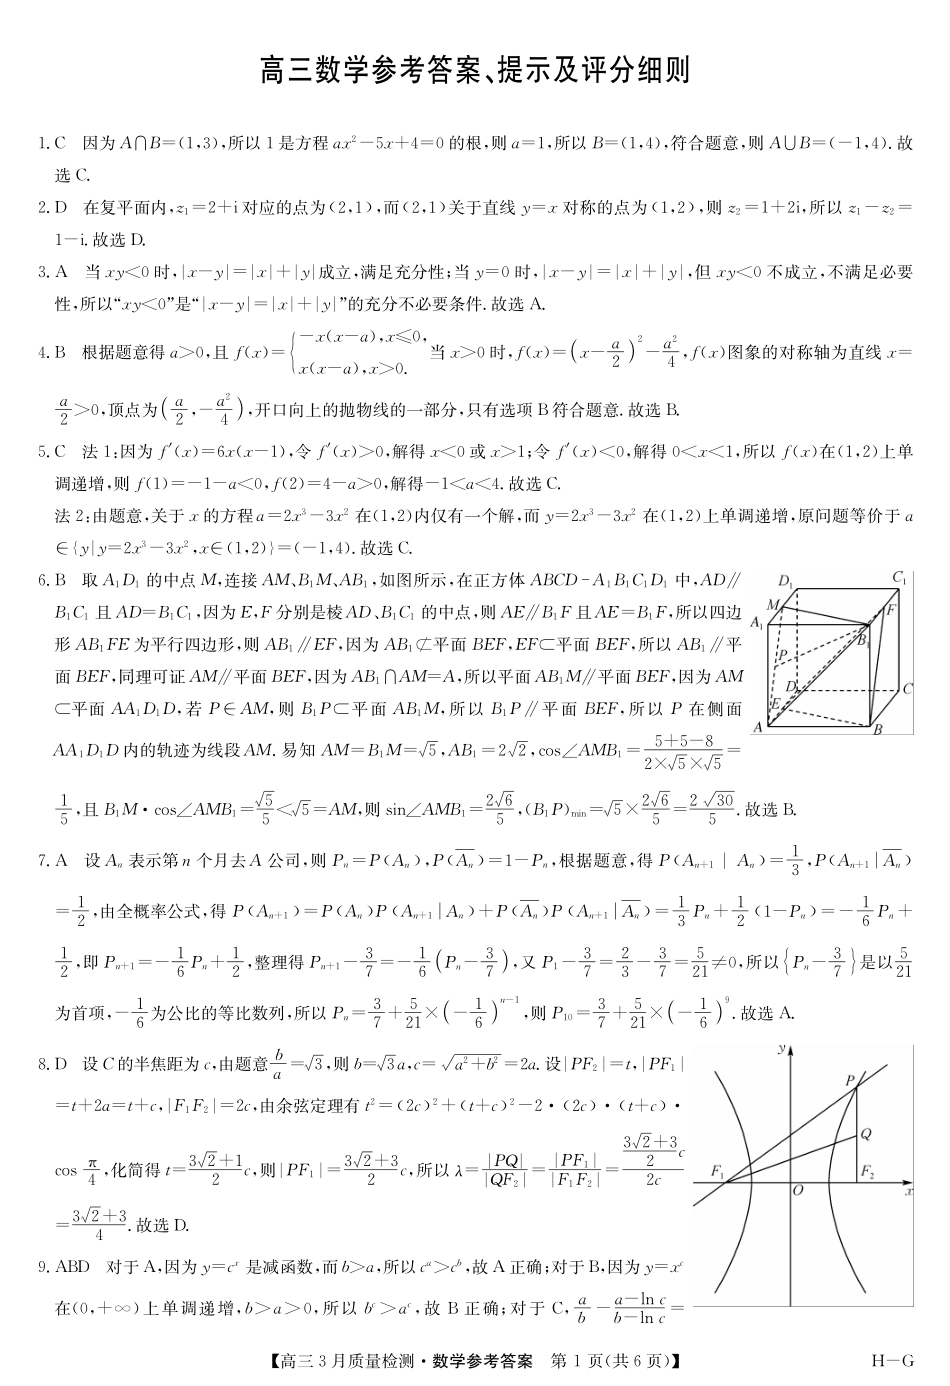 高三数学参考答案、提示及评分细则
1. C　因为 A∩B=(1,3),所以 1 是方程 ax²-5x+4=0 的根,则 a=1,所以 B=(1,4),符合题意,则 A∪B=(-1,4). 故
选 C.
2. D　在复平面内,z₁=2+i 对应的点为(2,1),而(2,1)关于直线 y=x 对称的点为(1,2),则 z₂=1+2i,所以 z₁-z₂=
1-i. 故选 D.
3. A　当 xy<0 时,|x-y|=|x|+|y|成立,满足充分性;当 y=0 时,|x-y|=|x|+|y|,但 xy<0 不成立,不满足必要
性,所以“xy<0”是“|x-y|=|x|+|y|”的充分不必要条件. 故选 A.
4. B　根据题意得 a>0,且 f(x)={-x(x-a),x≤0, x(x-a),x>0. 当 x>0 时,f(x)=(x-a/2)²-a²/4,f(x)图象的对称轴为直线 x=
a/2>0,顶点为(a/2,-a²/4),开口向上的抛物线的一部分,只有选项 B 符合题意. 故选 B.
5. C　法 1:因为 f′(x)=6x(x-1),令 f′(x)>0,解得 x<0 或 x>1;令 f′(x)<0,解得 0<x<1,所以 f(x)在(1,2)上单
调递增,则 f(1)=-1-a<0,f(2)=4-a>0,解得-1<a<4. 故选 C.
法 2:由题意,关于 x 的方程 a=2x³-3x² 在(1,2)内仅有一个解,而 y=2x³-3x² 在(1,2)上单调递增,原问题等价于 a
∈{y|y=2x³-3x²,x∈(1,2)}=(-1,4). 故选 C.
6. B　取 A₁D₁ 的中点 M,连接 AM、B₁M、AB₁,如图所示,在正方体 ABCD-A₁B₁C₁D₁ 中,AD∥
B₁C₁ 且 AD=B₁C₁,因为 E,F 分别是棱 AD、B₁C₁ 的中点,则 AE∥B₁F 且 AE=B₁F,所以四边
形 AB₁FE 为平行四边形,则 AB₁∥EF,因为 AB₁⊄平面 BEF,EF⊂平面 BEF,所以 AB₁∥平
面 BEF,同理可证 AM∥平面 BEF,因为 AB₁∩AM=A,所以平面 AB₁M∥平面 BEF,因为 AM
⊂平面 AA₁D₁D,若 P∈AM,则 B₁P⊂平面 AB₁M,所以 B₁P∥平面 BEF,所以 P 在侧面
AA₁D₁D 内的轨迹为线段 AM. 易知 AM=B₁M=√5,AB₁=2√2,cos∠AMB₁=(5+5-8)/(2×√5×√5)=
1/5,且 B₁M·cos∠AMB₁=√5/5<√5=AM,则 sin∠AMB₁=2√6/5,(B₁P)min=√5×2√6/5=2√30/5. 故选 B.
D₁ C₁
M F
A₁ B₁
P
D C
E
A B
7. A　设 Aₙ 表示第 n 个月去 A 公司,则 Pₙ=P(Aₙ),P(A̅ₙ)=1-Pₙ,根据题意,得 P(Aₙ₊₁|Aₙ)=1/3,P(Aₙ₊₁|A̅ₙ)
=1/2,由全概率公式,得 P(Aₙ₊₁)=P(Aₙ)P(Aₙ₊₁|Aₙ)+P(A̅ₙ)P(Aₙ₊₁|A̅ₙ)=1/3Pₙ+1/2(1-Pₙ)=-1/6Pₙ+
1/2,即 Pₙ₊₁=-1/6Pₙ+1/2,整理得 Pₙ₊₁-3/7=-1/6(Pₙ-3/7),又 P₁-3/7=2/3-3/7=5/21≠0,所以{Pₙ-3/7}是以5/21
为首项,-1/6为公比的等比数列,所以 Pₙ=3/7+5/21×(-1/6)ⁿ⁻¹,则 P₁₀=3/7+5/21×(-1/6)⁹. 故选 A.
8. D　设 C 的半焦距为 c,由题意b/a=√3,则 b=√3a,c=√(a²+b²)=2a. 设|PF₂|=t,|PF₁|
=t+2a=t+c,|F₁F₂|=2c,由余弦定理有 t²=(2c)²+(t+c)²-2·(2c)·(t+c)·
cos π/4,化简得 t=(3√2+1)/2 c,则|PF₁|=(3√2+3)/2 c,所以 λ=|PQ|/|QF₂|=|PF₁|/|F₁F₂|=((3√2+3)/2 c)/2c
=(3√2+3)/4. 故选 D.
y
P
Q
F₁ F₂
O x
9. ABD　对于 A,因为 y=cˣ 是减函数,而 b>a,所以 cᵃ>cᵇ,故 A 正确;对于 B,因为 y=xᶜ
在(0,+∞)上单调递增,b>a>0,所以 bᶜ>aᶜ,故 B 正确;对于 C,a/b-(a-ln c)/(b-ln c)=
【高三 3 月质量检测·数学参考答案　第 1 页(共 6 页)】
H-G